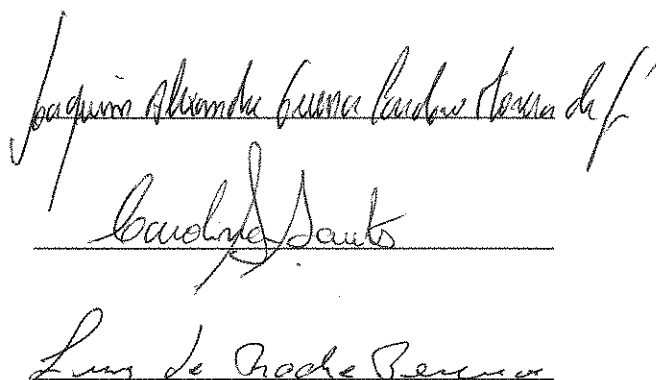 Joaquim Alexandre Guerra Cardoso Moreira de
Carolina Santos
Luis de Rocha